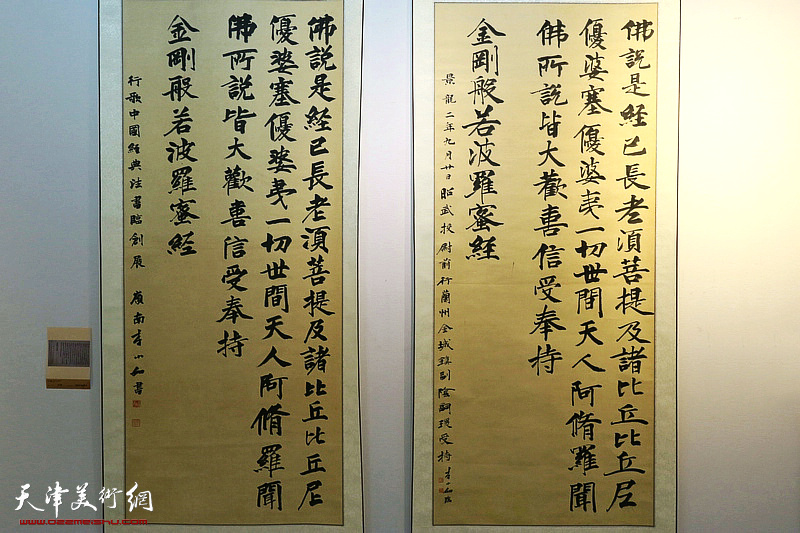 佛說是経已長老湏菩提及諸比丘比丘尼
優婆塞優婆夷一切世間天人阿脩羅聞
佛所說皆大歡喜信受奉持
金剛般若波羅蜜経
景龍二年九月廿日昭武校尉前行蘭州金城鎮副陰嗣瑗受持
佛說是経已長老湏菩提及諸比丘比丘尼
優婆塞優婆夷一切世間天人阿脩羅聞
佛所說皆大歡喜信受奉持
金剛般若波羅蜜経
行歌中國經典法書臨創展 嶺南李小如書
天津美術網